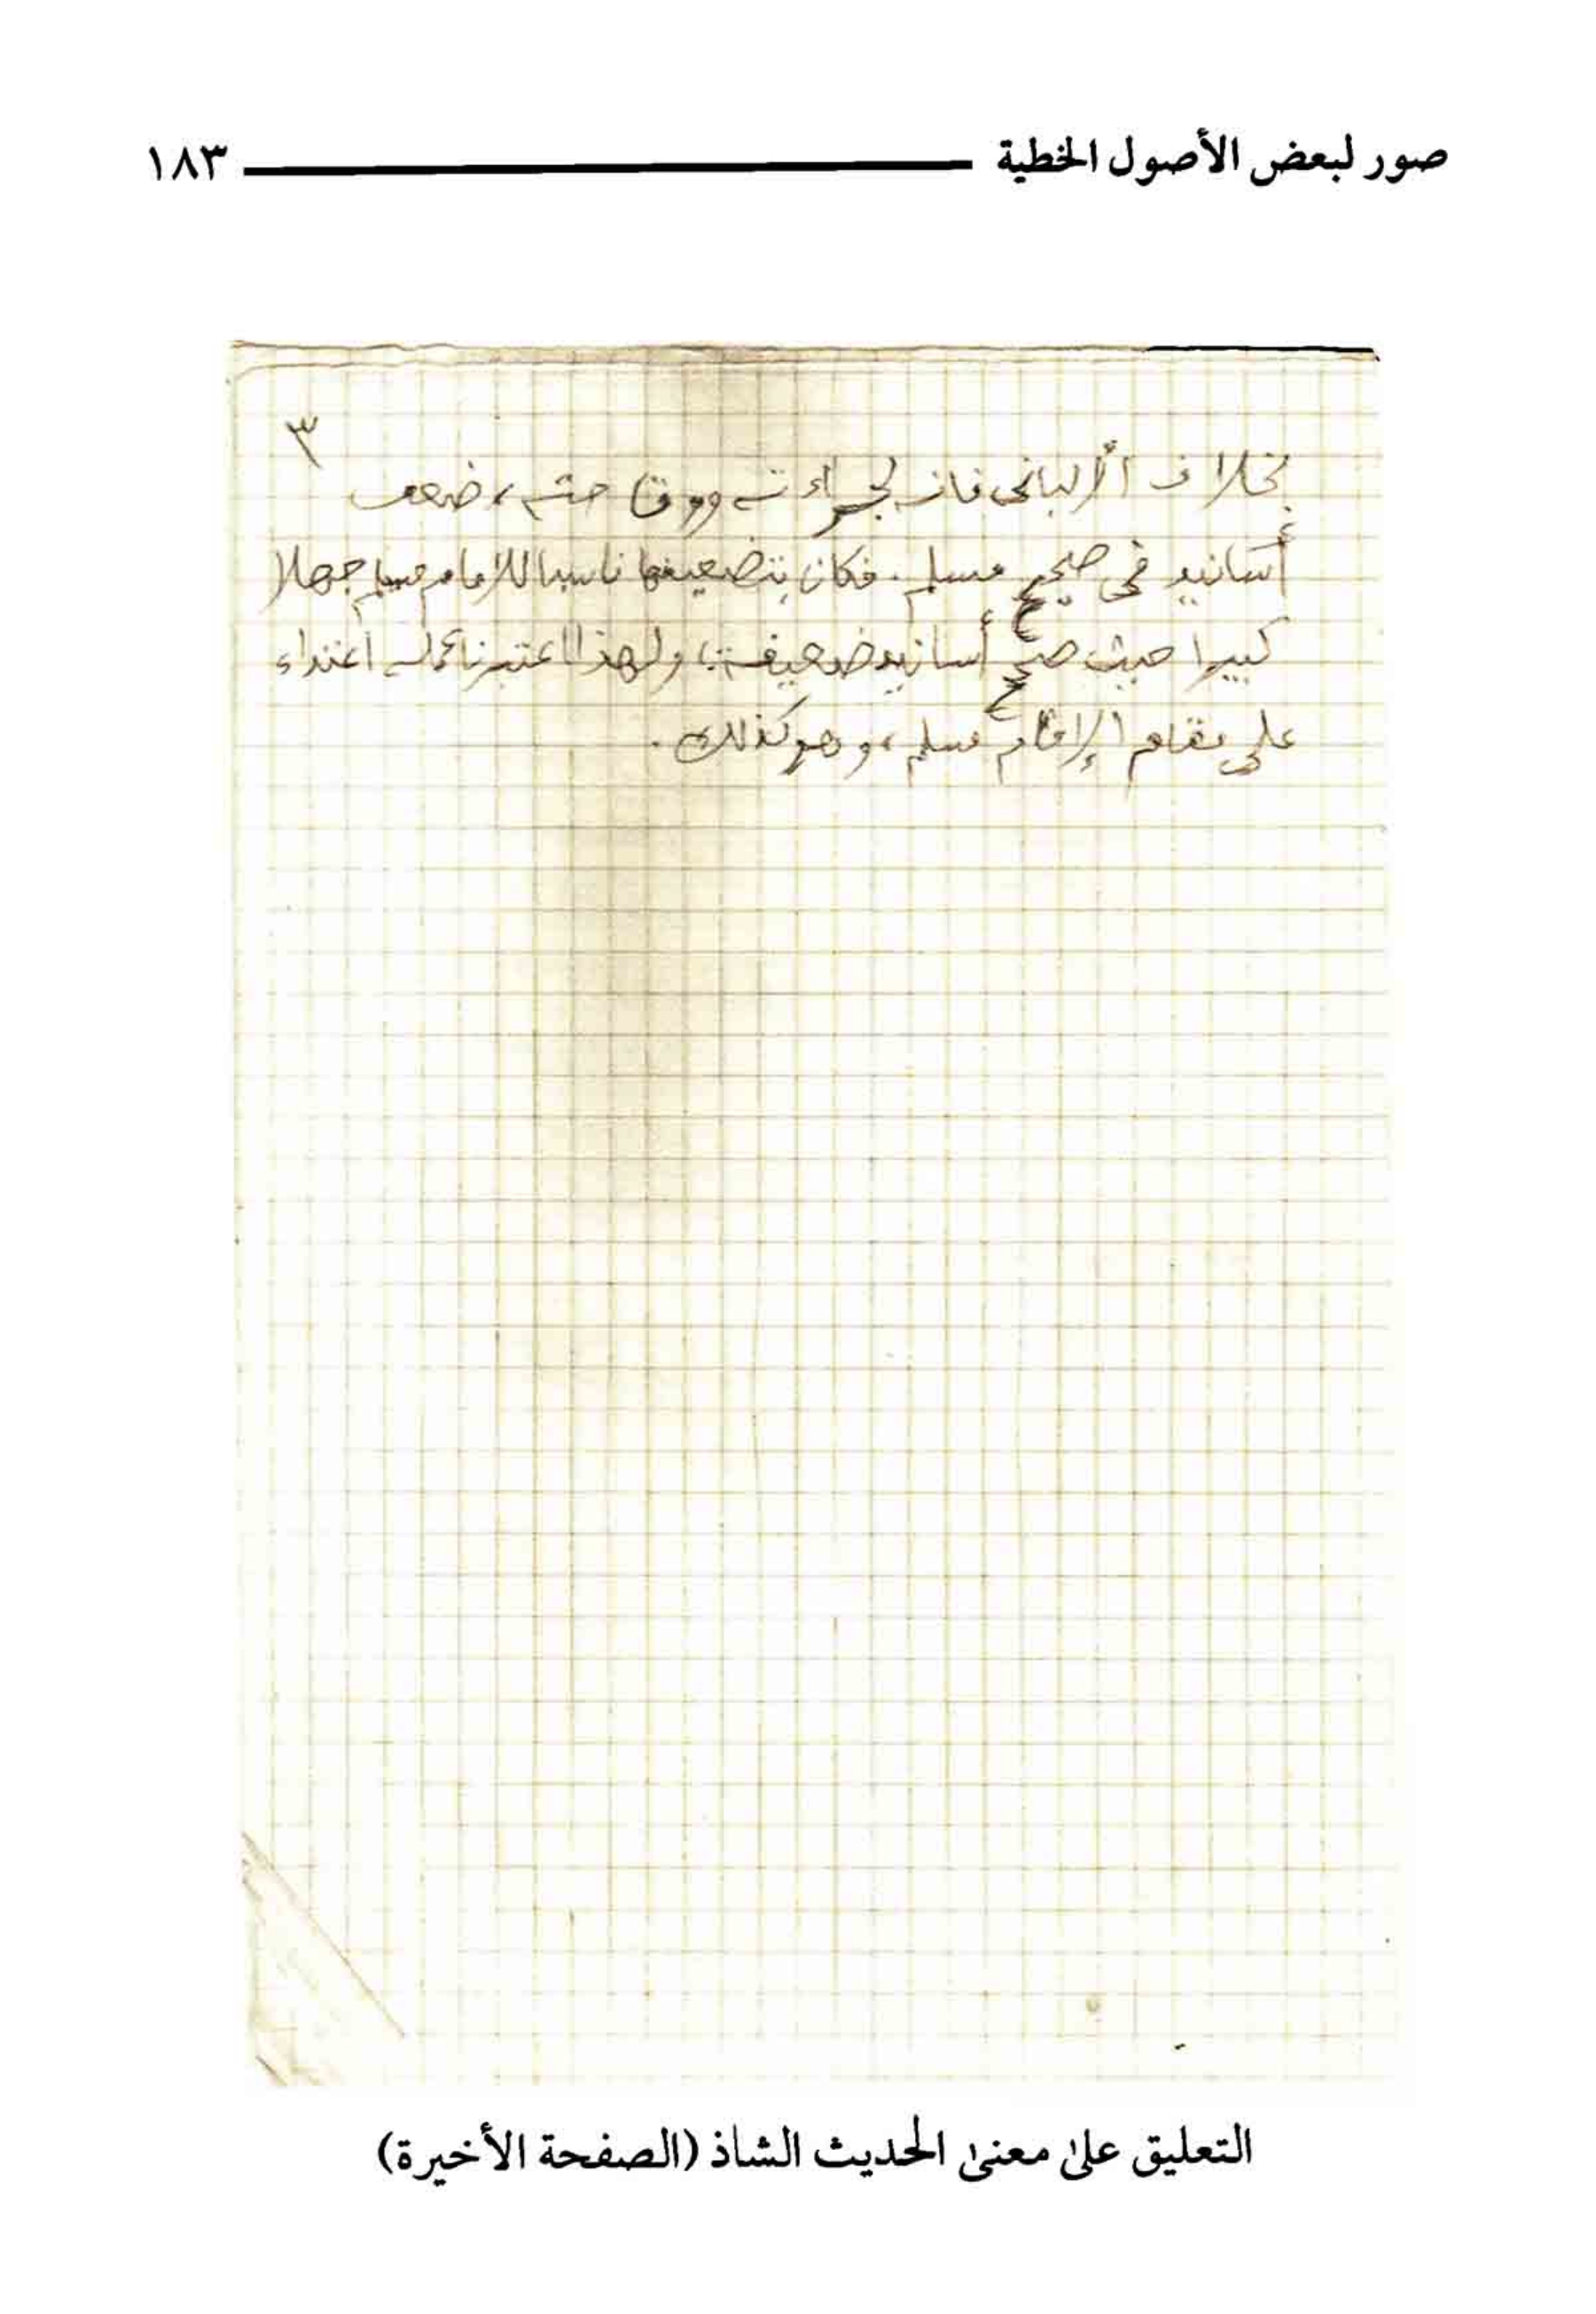 صور لبعض الأصول الخطية ١٨٣
٣
بخلاف الألباني فإنه لجراءته ووقاحته، ضعف
أسانيد في صحيح مسلم. فكان بتضعيفها ناسبا للامام مسلم جهلا
كبيرا حيث صحح أسانيد ضعيفة، ولهذا اعتبرنا عمله اعتداء
على مقام الإمام مسلم، وهو كذلك.
التعليق على معنى الحديث الشاذ (الصفحة الأخيرة)